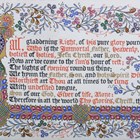 Hail, gladdening Light, of his pure glory poured
Who is the Immortal Father, heavenly,
Holiest of Holies, Jesus Christ, our Lord
Now are we come to the sun's hour of rest
The lights of evening round us shine
We hymn the Father, Son
Worthiest art Thou at all times to be sung
With undefiled tongue,
Son of our God, Giver of life, Alone
Therefore in all the world Thy glories, Christ,